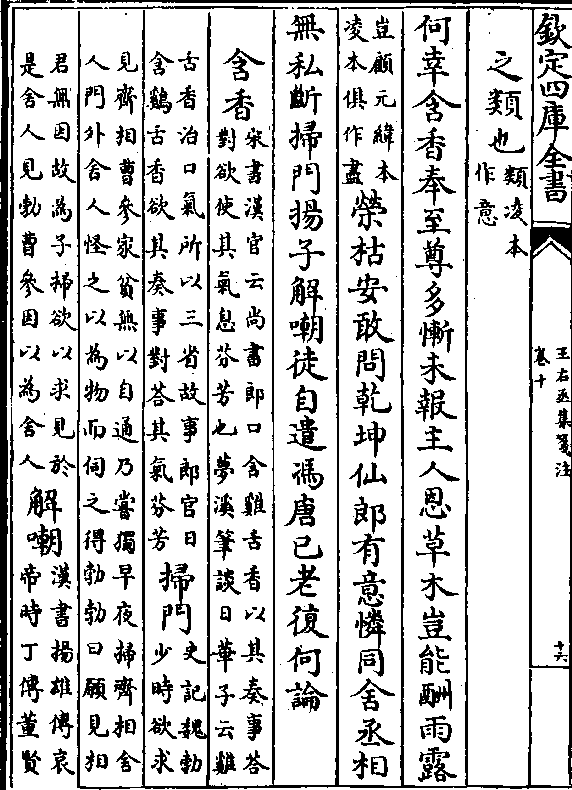 欽定四庫全書
王右丞集箋注
卷十
十六
之類也類凌本
作意
何幸含香奉至尊多慚未報主人恩草木豈能酬雨露
豈顧元緯本
凌本俱作盡
榮枯安敢問乾坤仙郎有意憐同舍丞相
無私斷掃門揚子解嘲徒自遣馮唐已老復何論
含香
宋書漢官云尚書郎口含雞舌香以其奏事答
對欲使其氣息芬芳也夢溪筆談日華子云雞
舌香治口氣所以三省故事郎官日
含鷄舌香欲其奏事對答其氣芬芳
掃門
史記魏勃
少時欲求
見齊相曹參家貧無以自通乃嘗獨早夜掃齊相舍
人門外舍人怪之以為物而伺之得勃勃曰願見相
君無因故為子掃欲以求見於
是舍人見勃曹參因以為舍人
解嘲
漢書揚雄傳哀
帝時丁傅董賢